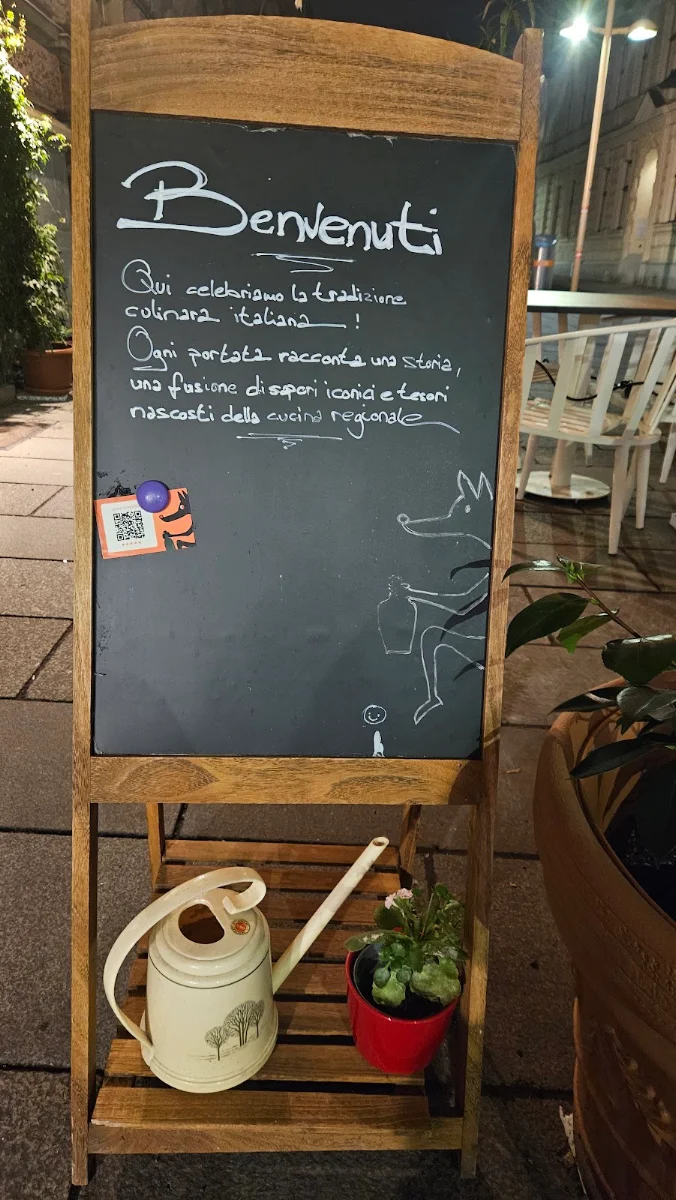 Benvenuti
Qui celebriamo la tradizione
culinara italiana !
Ogni portata racconta una storia,
una fusione di sapori iconici e tesori
nascosti della cucina regionale